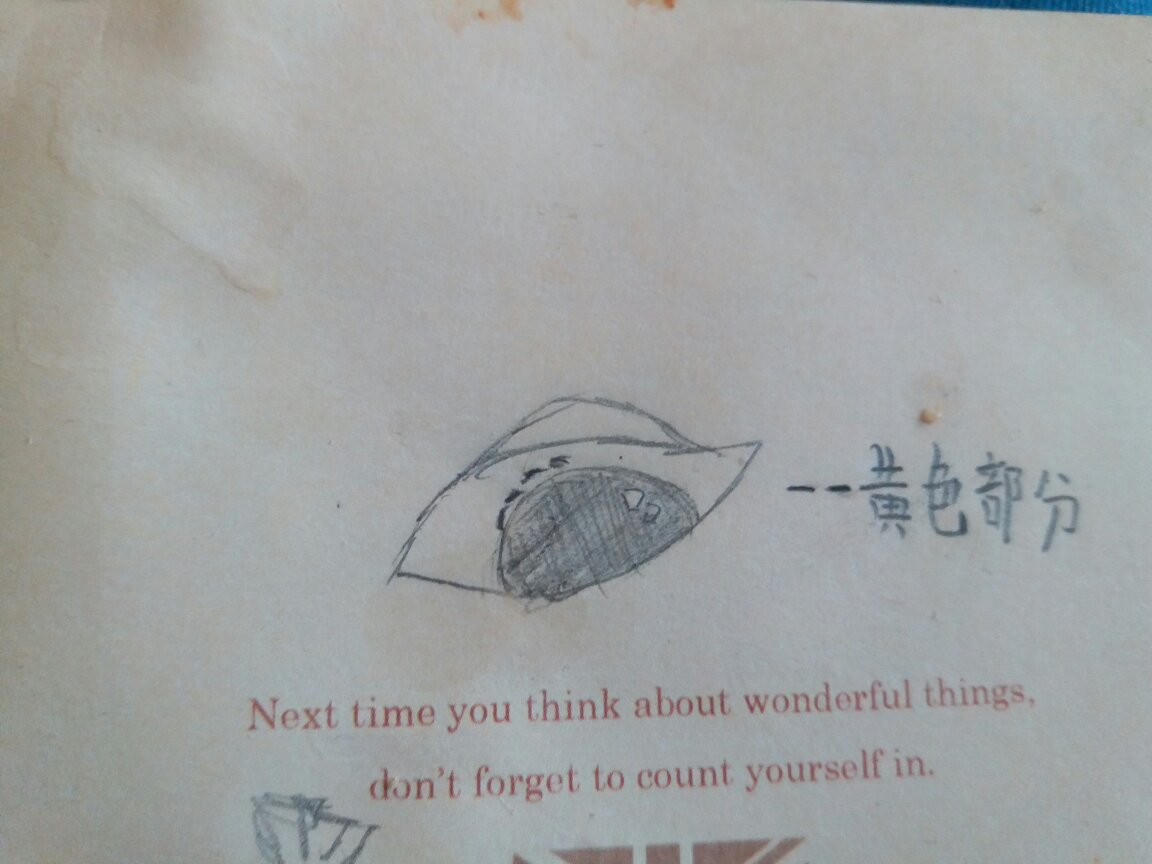 --黄色部分
Next time you think about wonderful things,
don't forget to count yourself in.